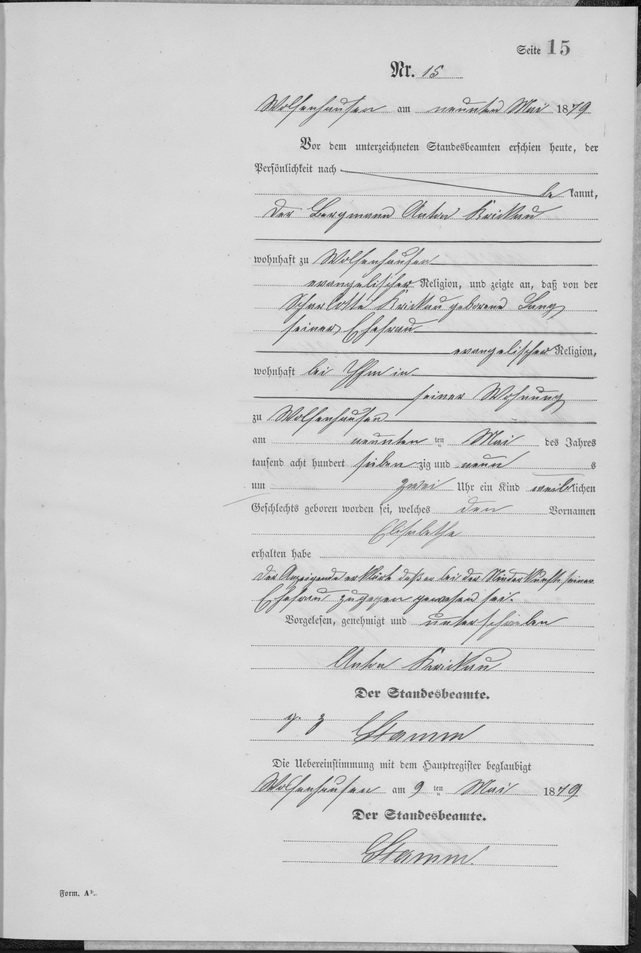 Seite 15
Nr. 15
Wolfenhausen am neunten Mai 1879
Vor dem unterzeichneten Standesbeamten erschien heute, der
Persönlichkeit nach
be kannt,
der Bergmann Anton Krickau
wohnhaft zu Wolfenhausen
evangelischer Religion, und zeigte an, daß von der
Scharlotte Krickau geborene Lang
seiner Ehefrau
evangelischer Religion,
wohnhaft bei Ihm in
seiner Wohnung
zu Wolfenhausen
am neunten ten Mai des Jahres
tausend acht hundert sieben zig und neun
um zwei Uhr ein Kind weiblichen
Geschlechts geboren worden sei, welches den Vornamen
Elisabethe
erhalten habe
der Anzeigende erklärte daß er bei der Niederkunft seiner
Ehefrau zugegen gewesen sei.
Vorgelesen, genehmigt und unterschrieben
Anton Krickau
Der Standesbeamte.
Stamm
Die Uebereinstimmung mit dem Hauptregister beglaubigt
Wolfenhausen am 9 ten Mai 1879
Der Standesbeamte.
Stamm.
Form. A³.